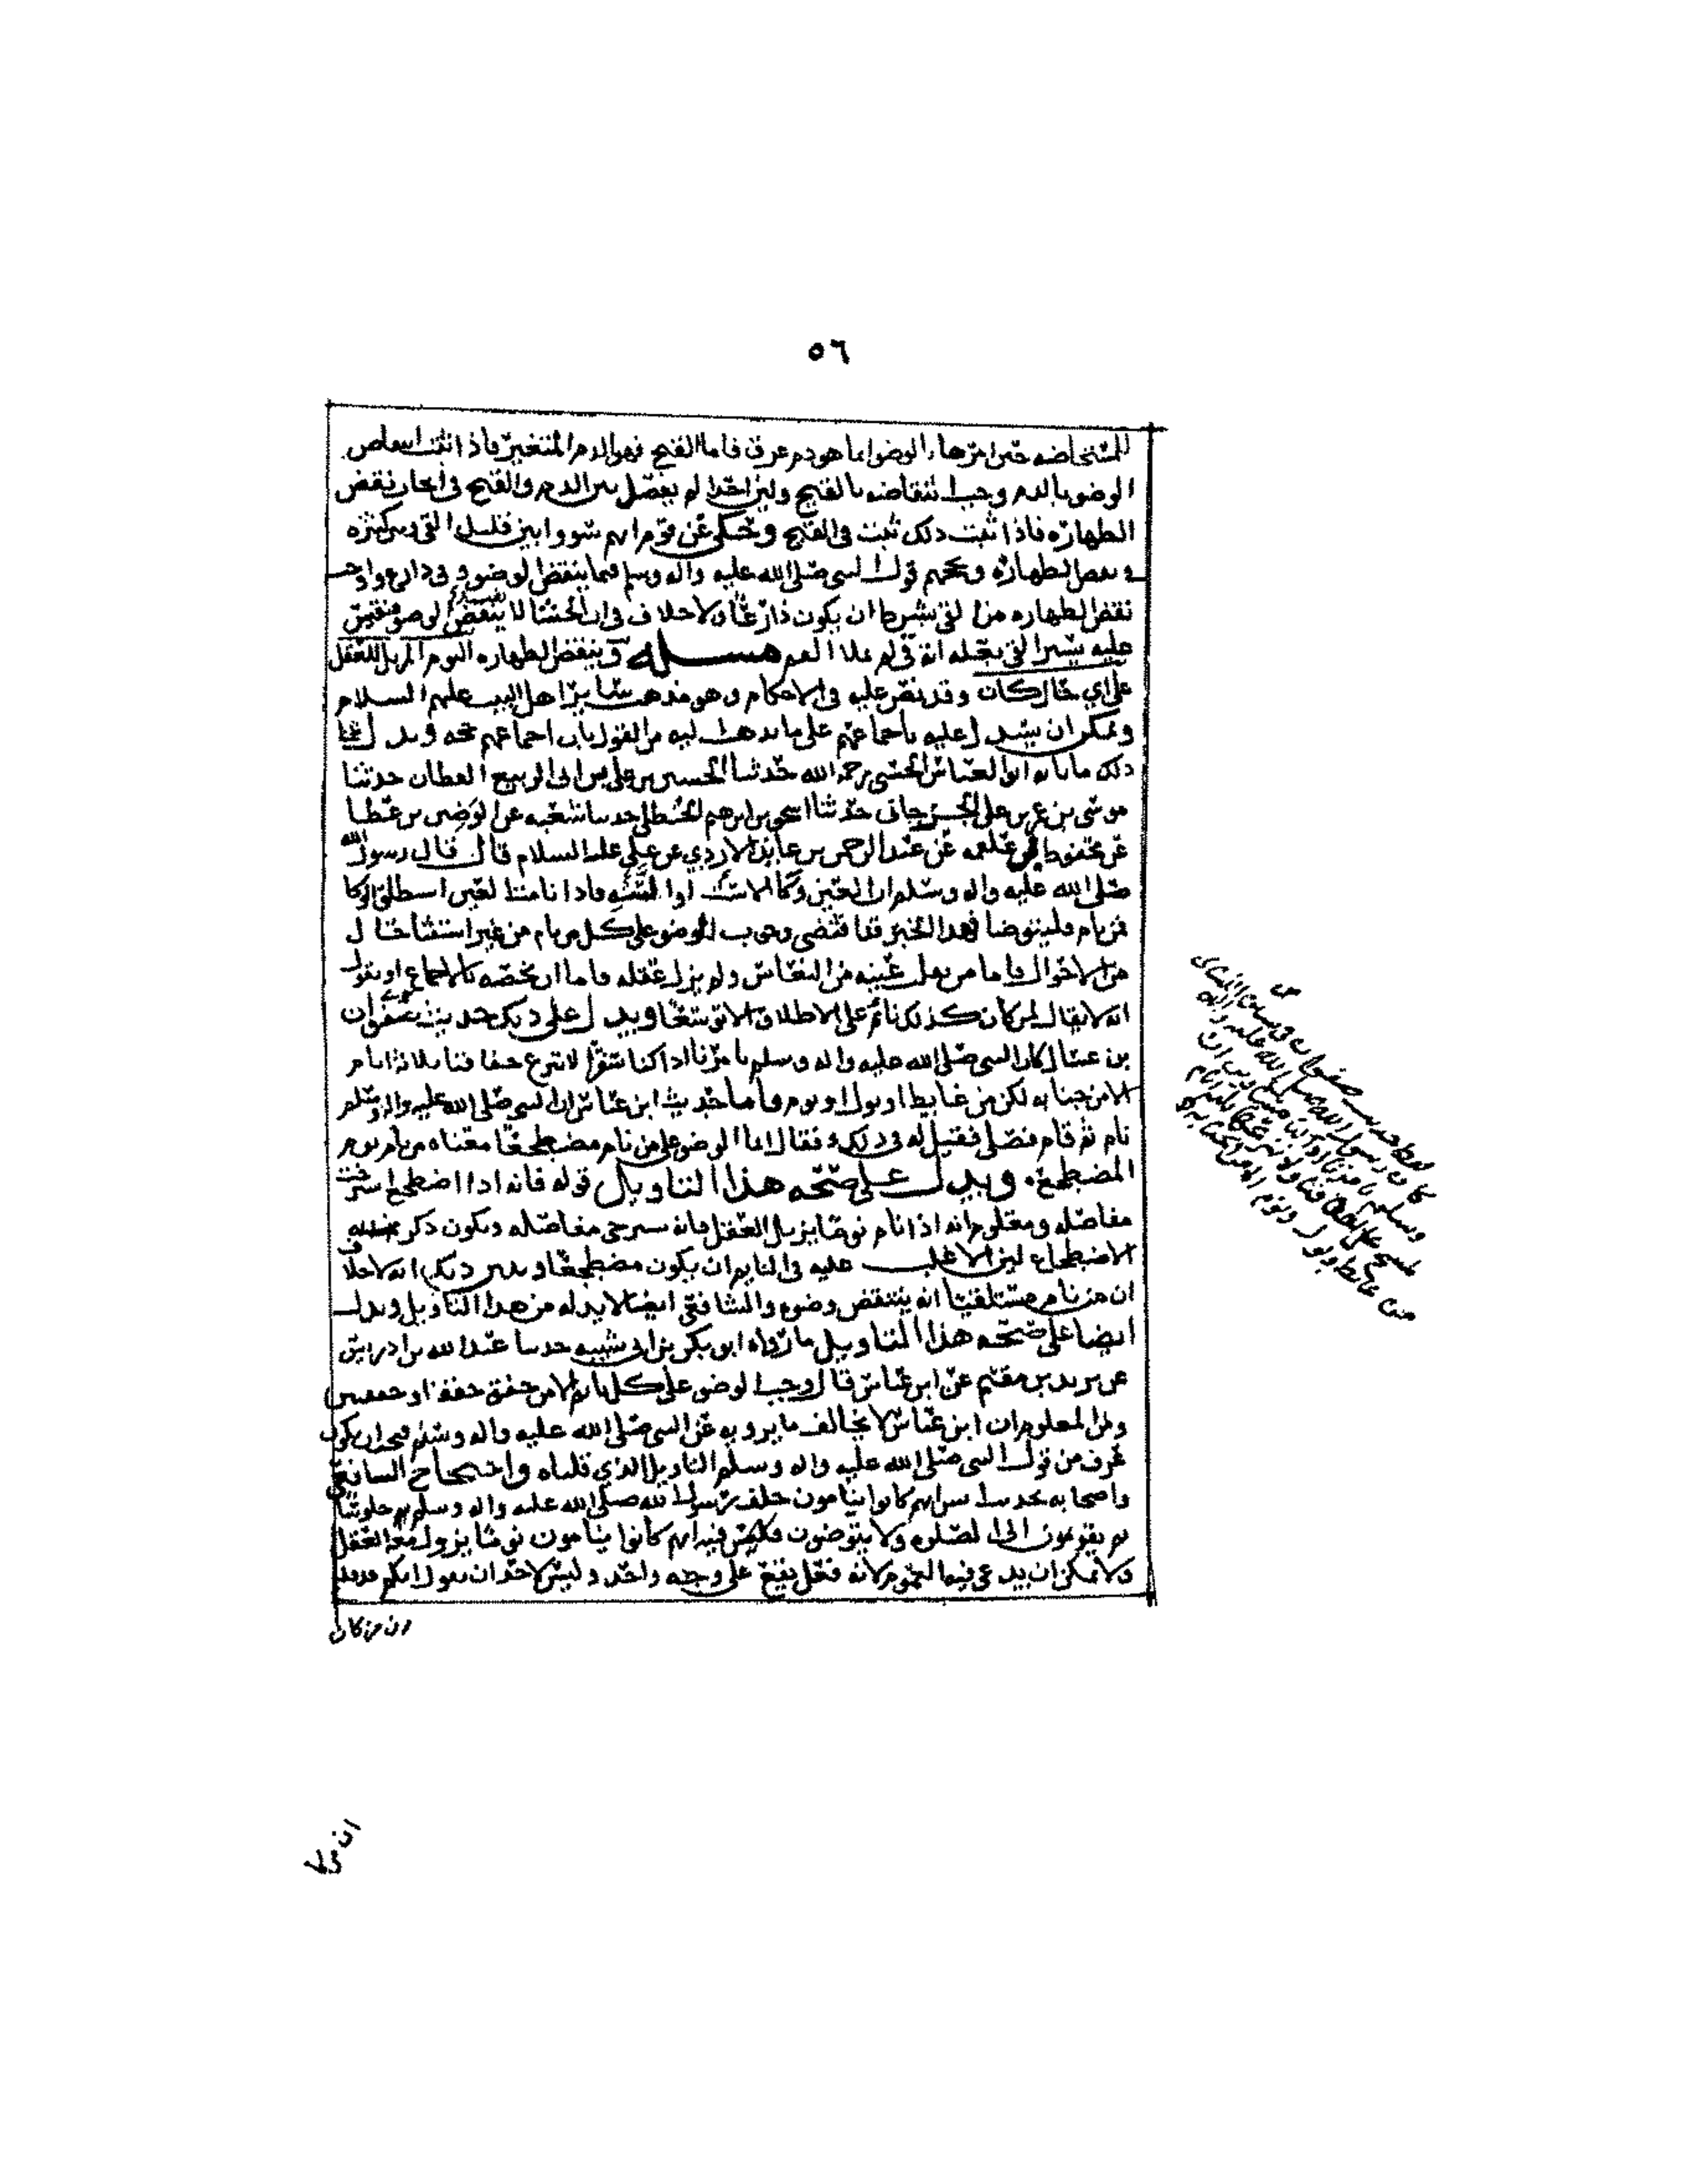 ٥٦
للمستحاضه حين امرها بالوضوا انما هو دم عرق فاما القيح فهو الدم المتغير فاذا اثبت انتقاض
الوضو بالدم وجب انتقاضه بالقيح ولان احدا لم يفصل بين الدم والقيح في ايجاب نقض
الطهاره فاذا ثبت ذلك ثبت في القيح وحكي عن قوم انهم سووا بين قليل القي وكثيره
في نقض الطهاره ويحجهم قول النبي صلى الله عليه واله وسلم فيما ينقض الوضو و في دارع واوجب
نقض الطهاره من القي بشرط ان يكون ذارعا ولا خلاف في ان الجشا لا ينقض الوضو فنقيس
عليه يسير القي بعله انه قي لم يملا الفم مسله وينقض الطهاره النوم المزيل للعقل
على اي حال كان وقد نص عليه في الاحكام وهو مذهب ساير اهل البيت عليهم السلام
ويمكن ان يستدل عليه باجماعهم على ما يذهب اليه من القول بان اجماعهم حجه ويدل على
ذلك ما انا به ابو العباس الحسني رحمه الله حدثنا الحسين بن علي بن ابي الربيع القطان حدثنا
موسى بن عمر بن علي الجرجاني حدثنا اسحق بن ابرهيم الحنظلي حدثنا شعبه عن الوضين بن عطا
عن محفوظ بن علقمه عن عبد الرحمن بن عايذ الازدي عن علي عليه السلام قال قال رسول الله
صلى الله عليه واله وسلم ان العين وكا السه فاذا نامت العين استطلق الوكا
فمن نام فليتوضا فهذا الخبر قد اقتضى وجوب الوضو على كل من نام من غير استثنا حال
من الاحوال فاما من نعلت عينيه من النعاس ولم يزل عقله فاما ان نخصه بالاجماع او نقول
انه لا يقال لمن كان كذلك نائم على الاطلاق الا توسعا ويدل على ذلك حديث صفوان
بن عسال كان النبي صلى الله عليه واله وسلم يامرنا اذا كنا سفرا لا ننزع خفافنا ثلاثه ايام
الا من جنابه لكن من غايط او بول او نوم فاما حديث ابن عباس ان النبي صلى الله عليه واله وسلم
نام ثم قام فصلى فقيل له في ذلك فقال انما الوضو على من نام مضطجعا معناه من نام نوم
المضطجع. ويدل على صحه هذا التاويل قوله فانه اذا اضطجع استرخت
مفاصله ومعلوم انه اذا نام نوما يزيل العقل فانه تسترخي مفاصله ويكون ذكر
الاضطجاع لان الاغلب عليه في النايم ان يكون مضطجعا ويبين ذلك انه لا خلاف
ان من نام مستلقيا انه ينتقض وضوه والشافعي ايضا لا بد له من هذا التاويل ويدل
ايضا على صحه هذا التاويل ما رواه ابو بكر بن ابي شيبه حدثنا عبد الله بن ادريس
عن يزيد بن مقسم عن ابن عباس قال وجب الوضو على كل نايم الا من خفق خفقه او خفقتين
ومن المعلوم ان ابن عباس لا يخالف ما يرويه عن النبي صلى الله عليه واله وسلم فيجب ان يكون
عرف من قول النبي صلى الله عليه واله وسلم التاويل الذي قلناه واحتجاج الشافعي
واصحابه بحديث انس انهم كانوا ينامون خلف رسول الله صلى الله عليه واله وسلم جلوسا
ثم يقومون الى الصلوه ولا يتوضون فليس فيه انهم كانوا ينامون نوما يزول معه العقل
ولا يمكن ان يدعى فيه العموم لانه فعل يقع على وجه واحد وليس لاحد ان يقول انكم
من كان
ص
لفظ حديث صفوان في
كان رسول الله صلى الله عليه واله
وسلم يامرنا اذا كنا مسافرين ان
نمسح على خفافنا ولا ننزعها ثلاثه ايام
من غائط وبول ونوم الا من جنابه